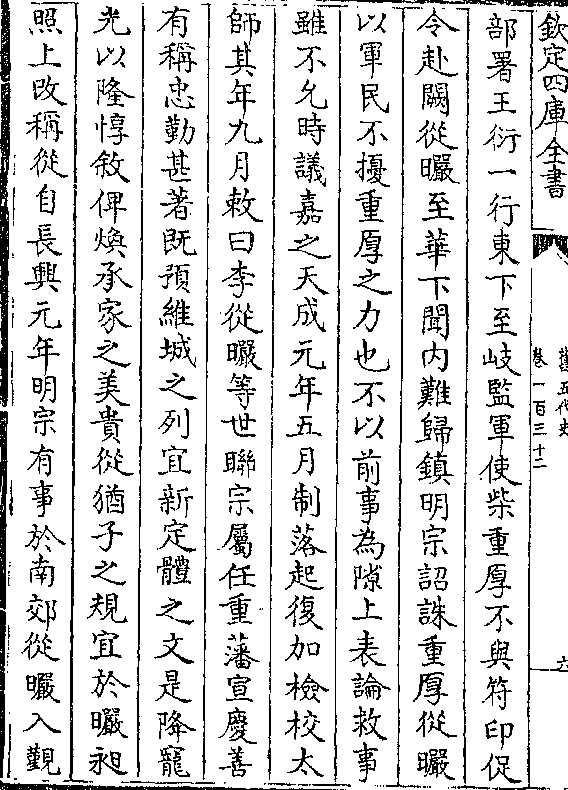 欽定四庫全書
舊五代史
卷一百三十二
六
部署王衍一行東下至岐監軍使柴重厚不與符印促
令赴闕從曮至華下聞内難歸鎮明宗詔誅重厚從曮
以軍民不擾重厚之力也不以前事為隙上表論救事
雖不允時議嘉之天成元年五月制落起復加檢校太
師其年九月敕曰李從曮等世聯宗屬任重藩宣慶善
有稱忠勤甚著既預維城之列宜新定體之文是降寵
光以隆惇敘俾煥承家之美貴從猶子之規宜於曮昶
照上改稱從自長興元年明宗有事於南郊從曮入覲